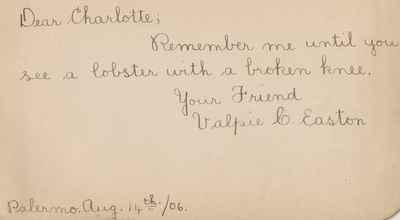 Dear Charlotte;
Remember me until you
see a lobster with a broken knee.
Your Friend
Valpie C. Easton
Palermo. Aug. 14th/06.